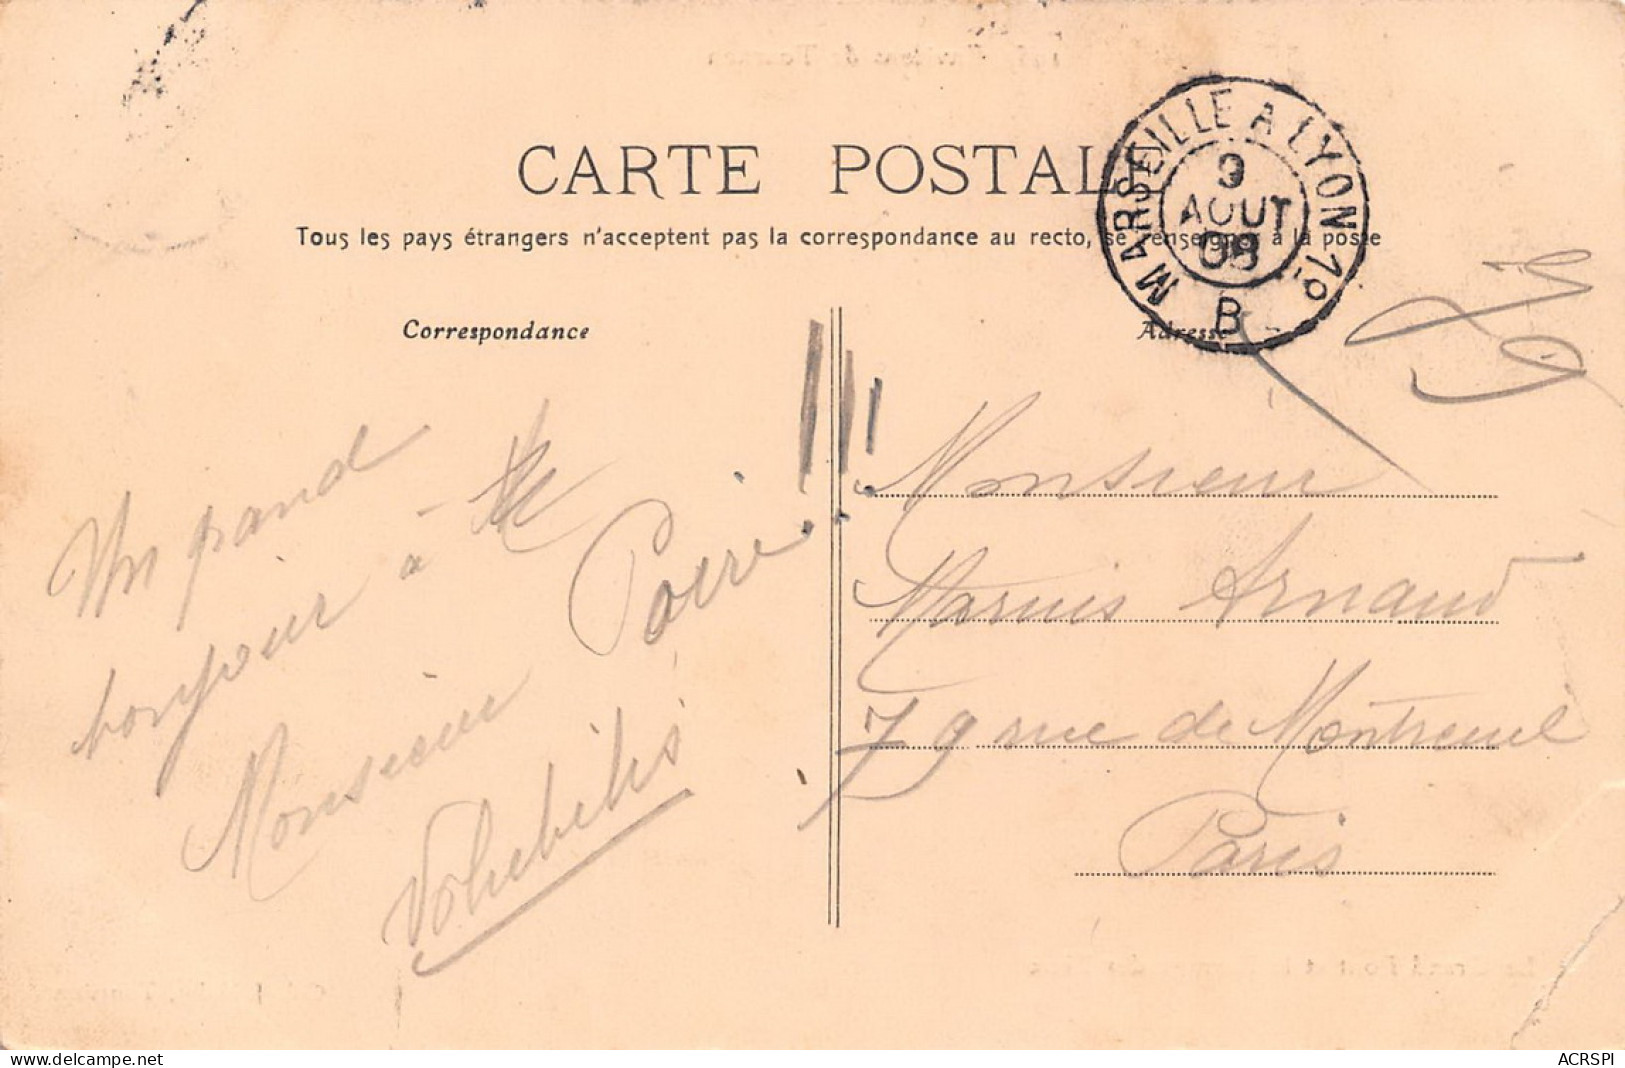 CARTE POSTALE
Tous les pays étrangers n'acceptent pas la correspondance au recto, se renseigner à la poste
MARSEILLE A LYON 1º
9
AOUT
08
B
Correspondance
Adresse
Un grand
bonjour à
Monsieur Poire!!!
Volubilis
Monsieur
Marius Arnaud
79 rue de Montreuil
Paris
www.delcampe.net
ACRSPI